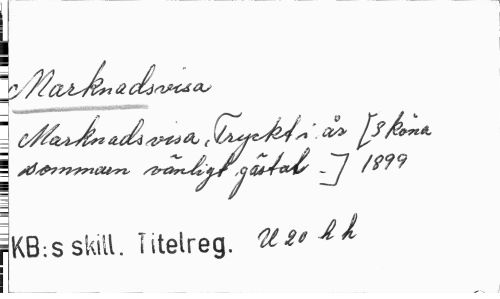 Marknadsvisa
Marknadsvisa, Tryckt i år [Sköna
sommaren vänligt gästat -] 1899
KB:s skill. Titelreg. U 20 h h